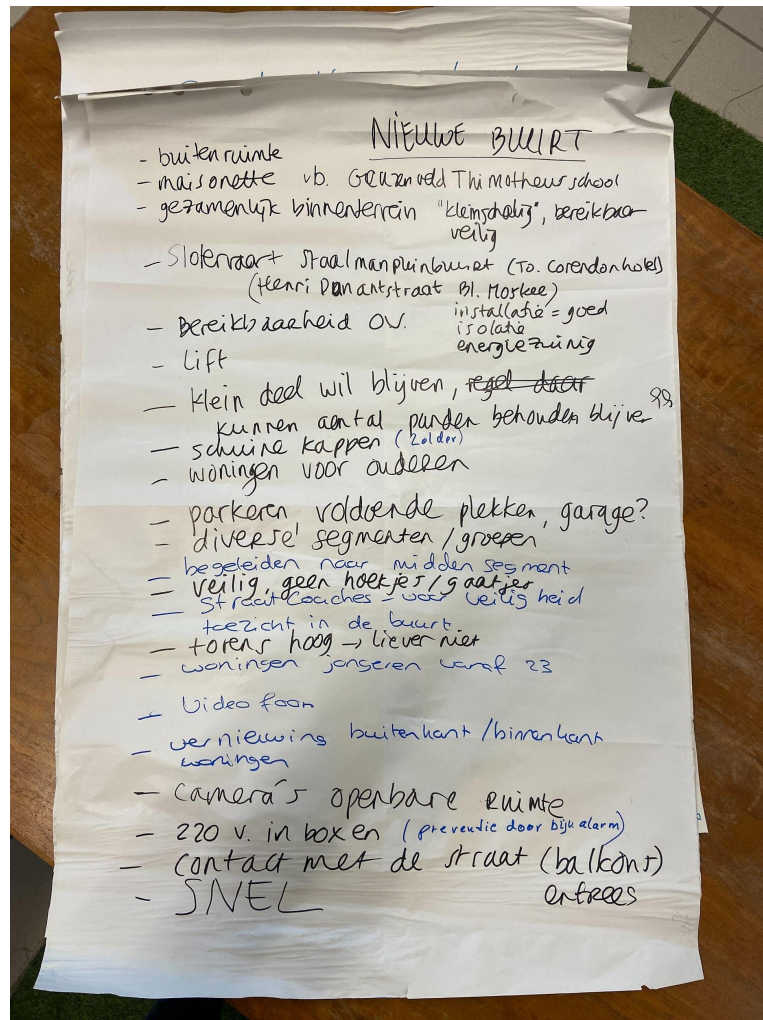 NIEUWE BUURT
- buitenruimte
- maisonette vb. Geuzenveld Thimotheus school
- gezamenlijk binnenterrein "kleinschalig", bereikbaar
veilig
- Slotervaart Staalmanpleinbuurt (To. Corendonhotel)
(Henri Dunantstraat Bl. Moskee)
- Bereikbaarheid OV. installatie = goed
isolatie
energiezuinig
- Lift
- klein deel wil blijven, regel daar
kunnen aantal panden behouden blijven
- schuine kappen (zolder)
- woningen voor ouderen
- parkeren voldoende plekken, garage?
- diverse segmenten / groepen
- begeleiden naar midden segment
- veilig, geen hoekjes / gaatjes
- Straatcoaches - voor veiligheid
toezicht in de buurt.
- torens hoog → liever niet
- woningen jongeren vanaf 23
- Videofoon
- vernieuwing buitenkant / binnenkant
woningen
- camera's openbare ruimte
- 220 v. in boxen (preventie door bijv alarm)
- contact met de straat (balkons)
entrees
- SNEL